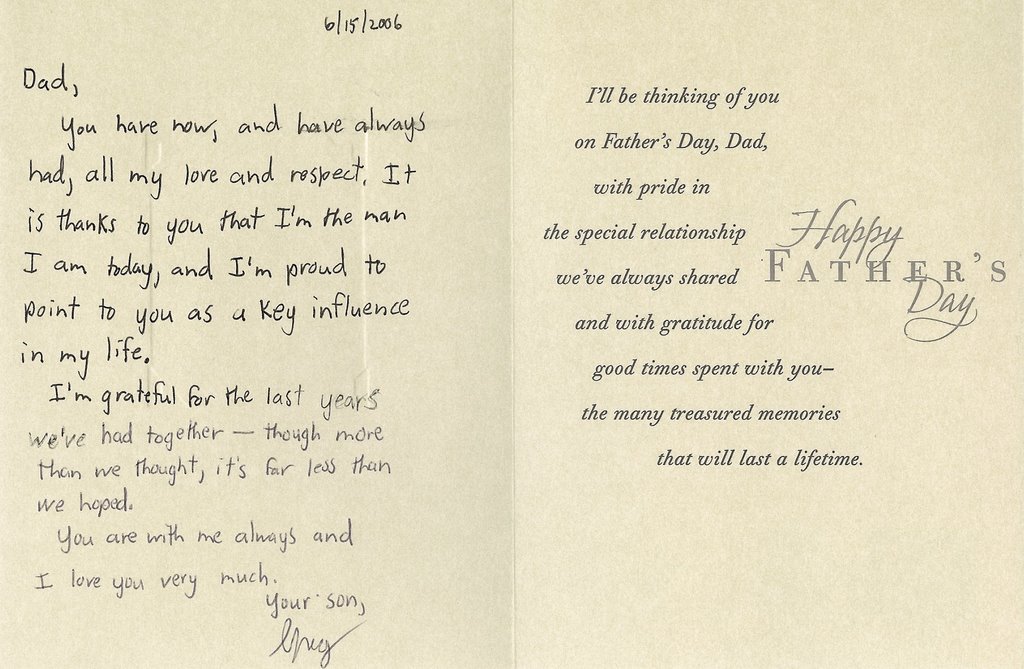 6/15/2006
Dad,
You have now, and have always
had, all my love and respect. It
is thanks to you that I'm the man
I am today, and I'm proud to
point to you as a key influence
in my life.
I'm grateful for the last years
we've had together — though more
than we thought, it's far less than
we hoped.
You are with me always and
I love you very much.
Your son,
Greg
I'll be thinking of you
on Father's Day, Dad,
with pride in
the special relationship
we've always shared
and with gratitude for
good times spent with you–
the many treasured memories
that will last a lifetime.
Happy
FATHER'S
Day